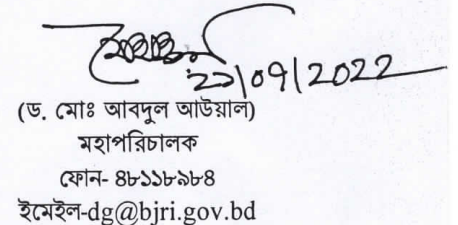 ২১|০৭|২০২২
(ড. মোঃ আবদুল আউয়াল)
মহাপরিচালক
ফোন- ৪৮১১৮৯৮৪
ইমেইল-dg@bjri.gov.bd